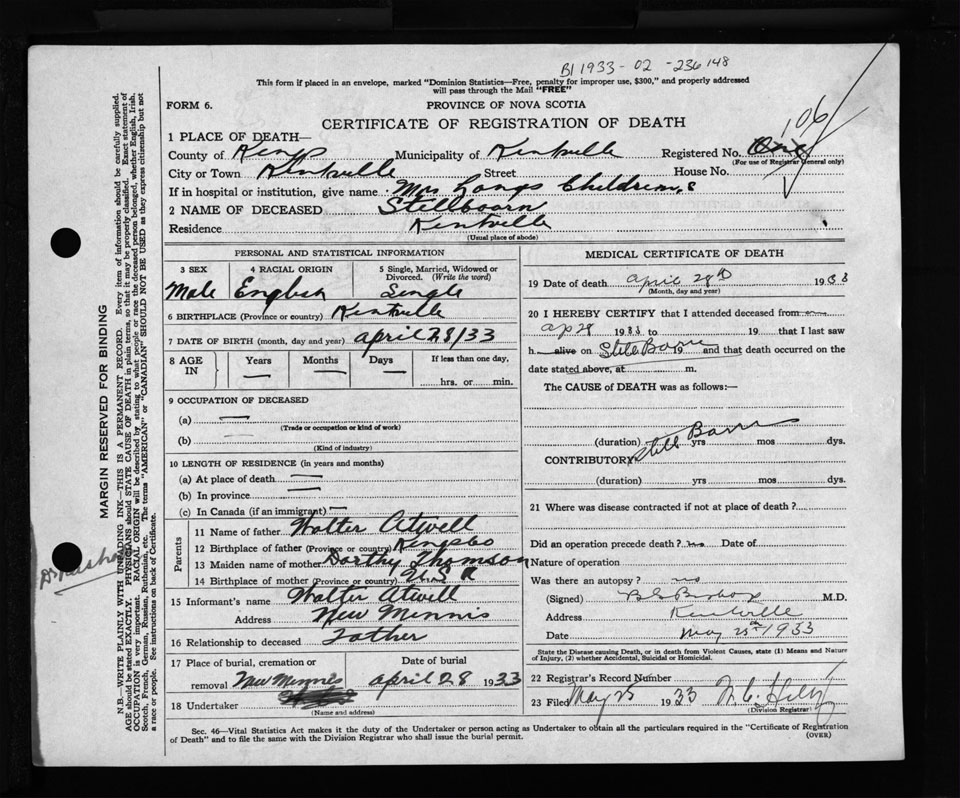 B1 1933-02-236148
This form if placed in an envelope, marked "Dominion Statistics—Free, penalty for improper use, $300," and properly addressed
will pass through the Mail "FREE"
FORM 6.
PROVINCE OF NOVA SCOTIA
106
CERTIFICATE OF REGISTRATION OF DEATH
1 PLACE OF DEATH—
County of Kings Municipality of Kentville Registered No. One
(For use of Registrar General only)
City or Town Kentville Street House No.
If in hospital or institution, give name Mrs Longs Childrens
2 NAME OF DECEASED Stillboarn
Residence Kentville
(Usual place of abode)
PERSONAL AND STATISTICAL INFORMATION
3 SEX 4 RACIAL ORIGIN 5 Single, Married, Widowed or Divorced. (Write the word)
Male English Single
6 BIRTHPLACE (Province or country) Kentville
7 DATE OF BIRTH (month, day and year) april 28/33
8 AGE IN Years Months Days If less than one day,
hrs. or min.
9 OCCUPATION OF DECEASED
(a)
(Trade or occupation or kind of work)
(b)
(Kind of industry)
10 LENGTH OF RESIDENCE (in years and months)
(a) At place of death
(b) In province
(c) In Canada (if an immigrant)
Parents
11 Name of father Walter Atwell
12 Birthplace of father (Province or country)
13 Maiden name of mother Dorthy Thomson
14 Birthplace of mother (Province or country)
15 Informant's name Walter Atwell
Address New Minnis
16 Relationship to deceased Father
17 Place of burial, cremation or Date of burial
removal New Minnis april 28 1933
18 Undertaker
(Name and address)
MEDICAL CERTIFICATE OF DEATH
19 Date of death april 28th 1933
(Month, day and year)
20 I HEREBY CERTIFY that I attended deceased from
ap 28 1933 to 19 that I last saw
h alive on Still Born 19 and that death occurred on the
date stated above, at m.
The CAUSE of DEATH was as follows:—
Still Born
(duration) yrs mos dys.
CONTRIBUTORY
(duration) yrs mos dys.
21 Where was disease contracted if not at place of death?
Did an operation precede death? no Date of
Nature of operation
Was there an autopsy? no
(Signed) M.D.
Address Kentville
Date May 25th 1933
State the Disease causing Death, or in death from Violent Causes, state (1) Means and Nature
of Injury, (2) whether Accidental, Suicidal or Homicidal.
22 Registrar's Record Number
23 Filed May 25 1933
(Division Registrar)
Sec. 46—Vital Statistics Act makes it the duty of the Undertaker or person acting as Undertaker to obtain all the particulars required in the "Certificate of Registration
of Death" and to file the same with the Division Registrar who shall issue the burial permit.
(OVER)
MARGIN RESERVED FOR BINDING
N.B.—WRITE PLAINLY WITH UNFADING INK—THIS IS A PERMANENT RECORD. Every item of information should be carefully supplied.
AGE should be stated EXACTLY. PHYSICIANS should STATE CAUSE OF DEATH in plain terms, so that it may be properly classified. Exact statement of
OCCUPATION is very important. RACIAL ORIGIN will be described by stating to what people or race the deceased person belonged, whether English, Irish,
Scotch, French, German, Russian, Ruthenian, etc. The terms "AMERICAN" or "CANADIAN" SHOULD NOT BE USED as they express citizenship but not
a race or people. See instructions on back of Certificate.